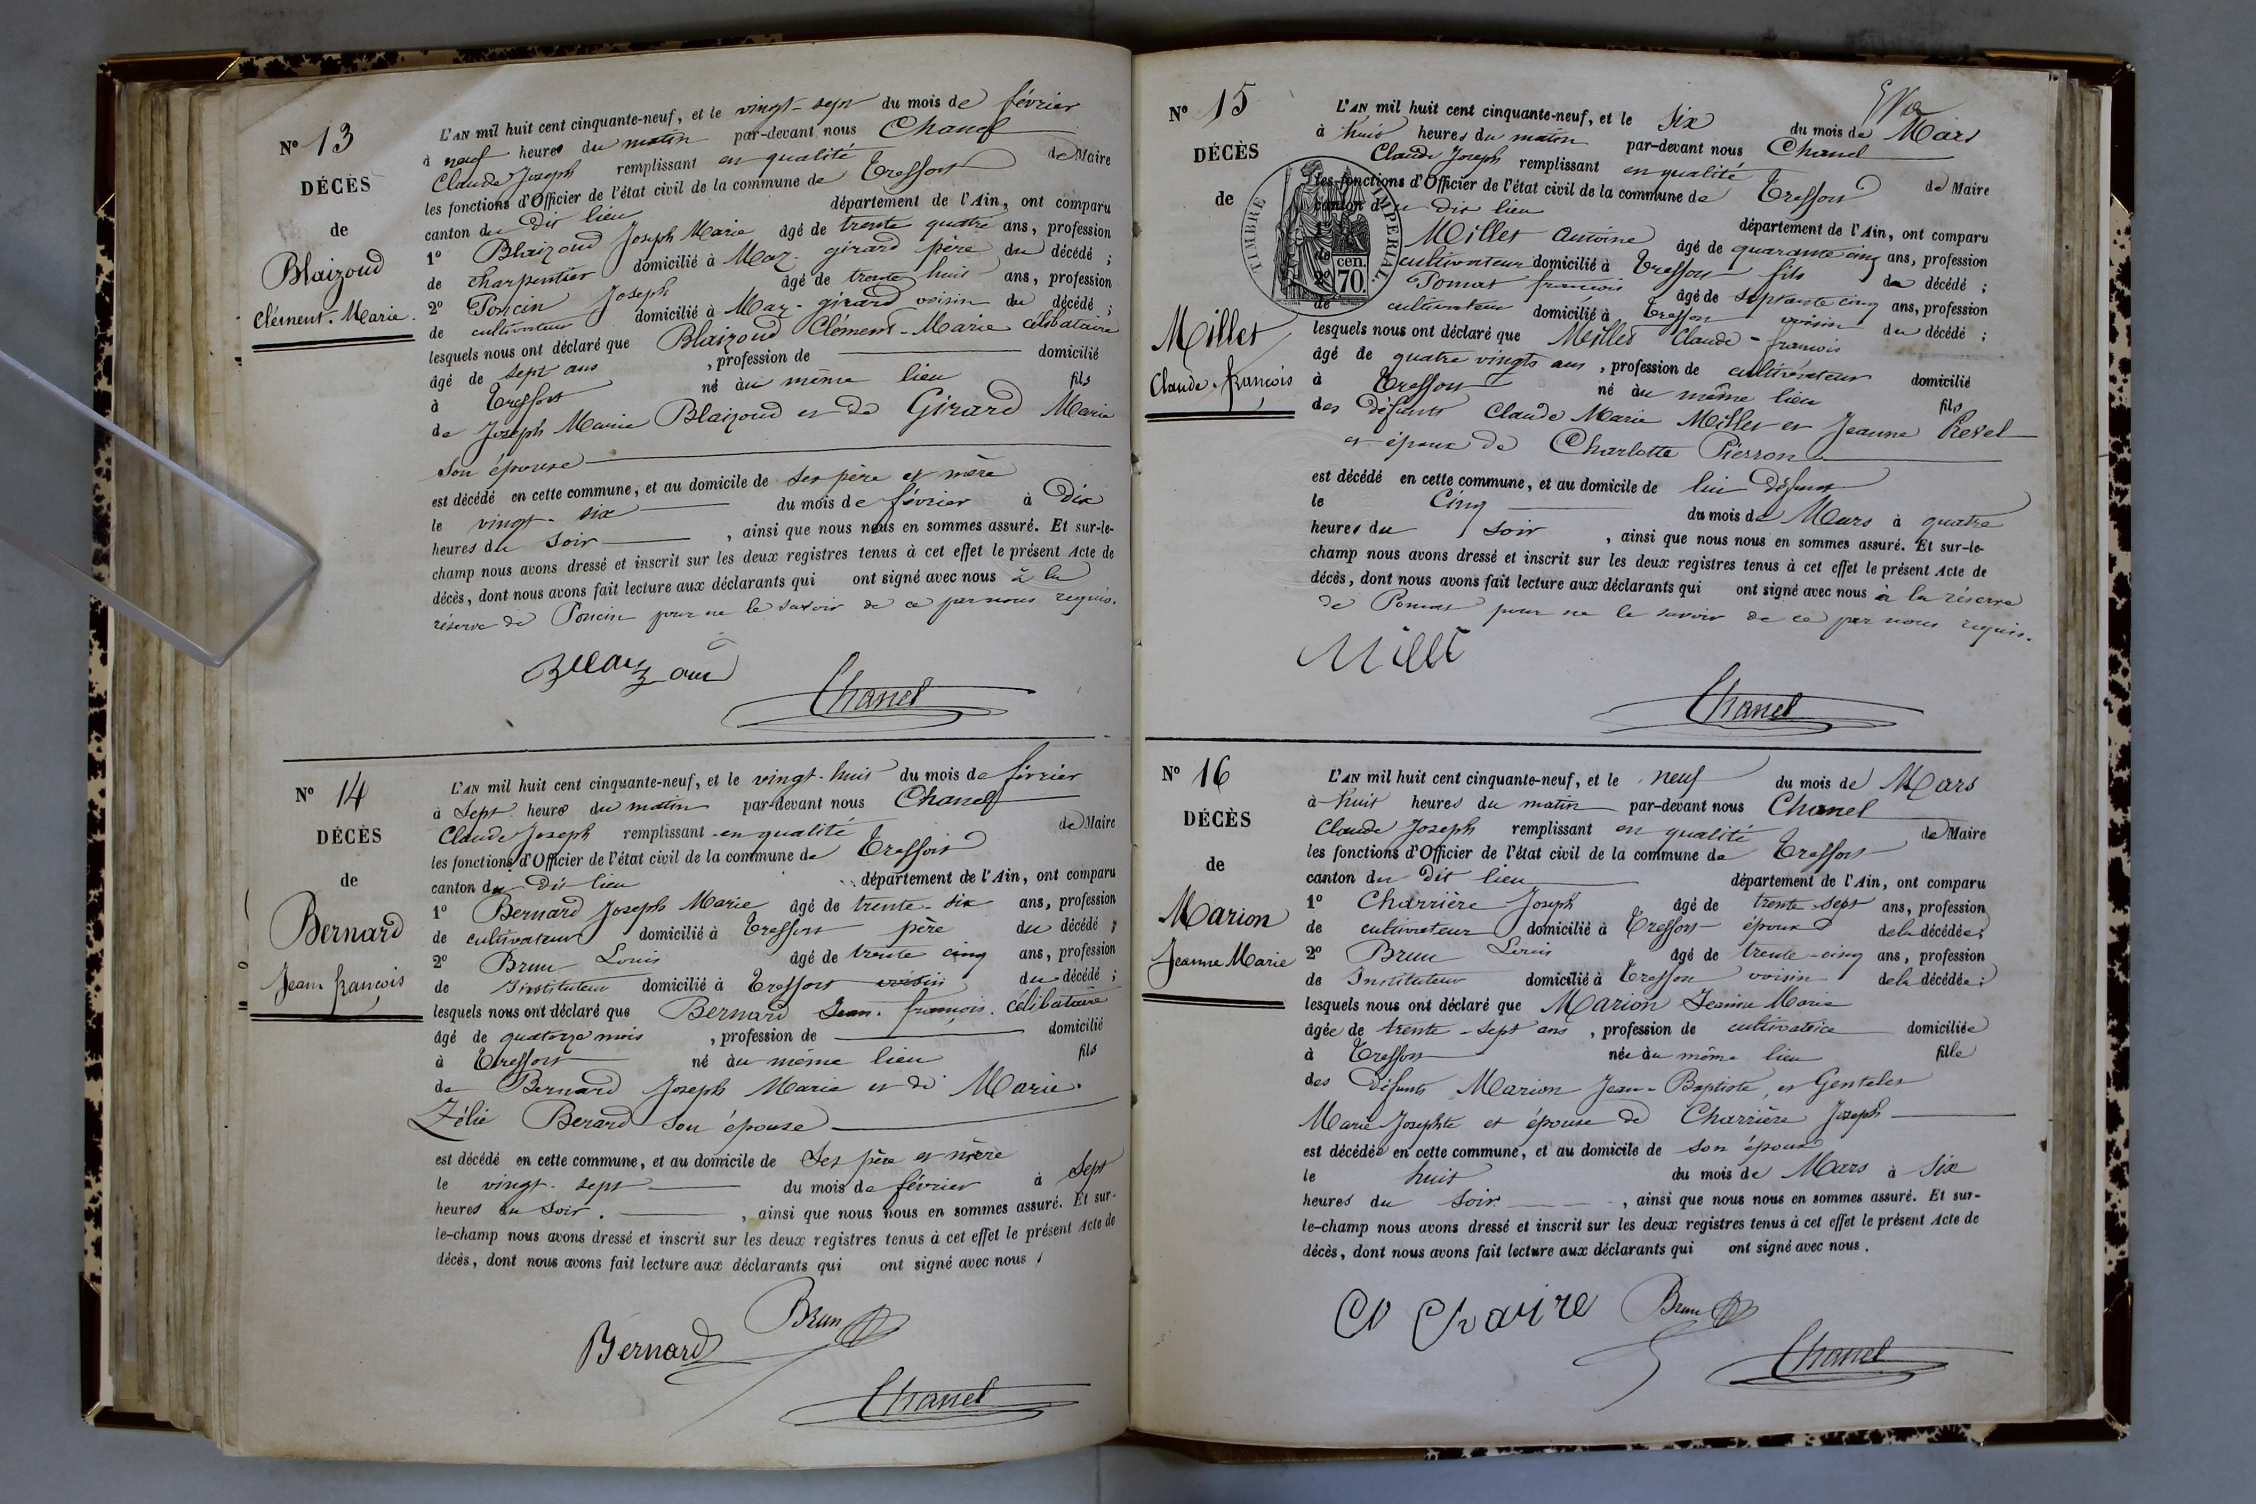 N° 13
DÉCÈS
de
Blaizoud
Clément-Marie.
L'AN mil huit cent cinquante-neuf, et le vingt-sept du mois de février
à neuf heures du matin par-devant nous Chanel
Claude Joseph remplissant en qualité de Maire
les fonctions d'Officier de l'état civil de la commune de Treffort
canton du dit lieu département de l'Ain, ont comparu
1° Blaizoud Joseph Marie âgé de trente quatre ans, profession
de charpentier domicilié à Maz-girard père du décédé ;
2° Poncin Joseph âgé de trente huit ans, profession
de cultivateur domicilié à Maz-girard voisin du décédé ;
lesquels nous ont déclaré que Blaizoud Clément-Marie célibataire
âgé de sept ans , profession de domicilié
à Treffort né au même lieu fils
de Joseph Marie Blaizoud et de Girard Marie
son épouse
est décédé en cette commune, et au domicile de ses père et mère
le vingt-six du mois de février à dix
heures du soir , ainsi que nous nous en sommes assuré. Et sur-le-
champ nous avons dressé et inscrit sur les deux registres tenus à cet effet le présent Acte de
décès, dont nous avons fait lecture aux déclarants qui ont signé avec nous à la
réserve de Poncin pour ne le savoir de ce par nous requis.
Chanel
N° 14
DÉCÈS
de
Bernard
Jean françois
L'AN mil huit cent cinquante-neuf, et le vingt-huit du mois de février
à sept heures du matin par-devant nous Chanel
Claude Joseph remplissant en qualité de Maire
les fonctions d'Officier de l'état civil de la commune de Treffort
canton du dit lieu département de l'Ain, ont comparu
1° Bernard Joseph Marie âgé de trente-six ans, profession
de cultivateur domicilié à Treffort père du décédé ;
2° Brun Louis âgé de trente cinq ans, profession
de Instituteur domicilié à Treffort voisin du décédé ;
lesquels nous ont déclaré que Bernard Jean-françois célibataire
âgé de quatorze mois , profession de domicilié
à Treffort né au même lieu fils
de Bernard Joseph Marie et de Marie
Zélie Berard son épouse
est décédé en cette commune, et au domicile de ses père et mère
le vingt-sept du mois de février à sept
heures du soir. , ainsi que nous nous en sommes assuré. Et sur-
le-champ nous avons dressé et inscrit sur les deux registres tenus à cet effet le présent Acte de
décès, dont nous avons fait lecture aux déclarants qui ont signé avec nous.
Brun
Bernard
Chanel
N° 15
DÉCÈS
de
Millet
Claude-françois
TIMBRE IMPERIAL
cen.
70.
L'AN mil huit cent cinquante-neuf, et le six du mois de Mars
à huit heures du matin par-devant nous Chanel
Claude Joseph remplissant en qualité de Maire
les fonctions d'Officier de l'état civil de la commune de Treffort
canton du dit lieu département de l'Ain, ont comparu
Millet Antoine âgé de quarante cinq ans, profession
de cultivateur domicilié à Treffort fils du décédé ;
2° Pomat françois âgé de septante cinq ans, profession
de cultivateur domicilié à Treffort voisin du décédé ;
lesquels nous ont déclaré que Millet Claude-françois
âgé de quatre vingts ans , profession de cultivateur domicilié
à Treffort né au même lieu fils
des défunts Claude Marie Millet et Jeanne Revel
et époux de Charlotte Pierron
est décédé en cette commune, et au domicile de lui défunt
le cinq du mois de Mars à quatre
heures du soir , ainsi que nous nous en sommes assuré. Et sur-le-
champ nous avons dressé et inscrit sur les deux registres tenus à cet effet le présent Acte de
décès, dont nous avons fait lecture aux déclarants qui ont signé avec nous à la réserve
de Pomat pour ne le savoir de ce par nous requis.
Chanel
N° 16
DÉCÈS
de
Marion
Jeanne Marie
L'AN mil huit cent cinquante-neuf, et le neuf du mois de Mars
à huit heures du matin par-devant nous Chanel
Claude Joseph remplissant en qualité de Maire
les fonctions d'Officier de l'état civil de la commune de Treffort
canton du dit lieu département de l'Ain, ont comparu
1° Charrière Joseph âgé de trente sept ans, profession
de cultivateur domicilié à Treffort époux de la décédée ;
2° Brun Louis âgé de trente-cinq ans, profession
de Instituteur domicilié à Treffort voisin de la décédée ;
lesquels nous ont déclaré que Marion Jeanne Marie
âgée de trente-sept ans , profession de cultivatrice domiciliée
à Treffort née au même lieu fille
des défunts Marion Jean-Baptiste, et Gentelet
Marie Josephte et épouse de Charrière Joseph
est décédée en cette commune, et au domicile de son époux
le huit du mois de Mars à six
heures du soir. , ainsi que nous nous en sommes assuré. Et sur-
le-champ nous avons dressé et inscrit sur les deux registres tenus à cet effet le présent Acte de
décès, dont nous avons fait lecture aux déclarants qui ont signé avec nous.
Brun
Chanel